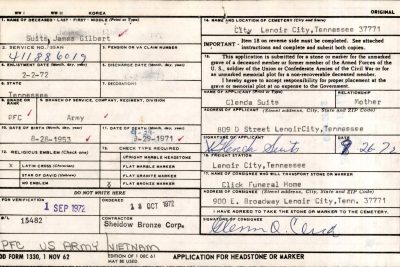 WW I
WW II
KOREA
ORIGINAL
1. NAME OF DECEASED - LAST - FIRST - MIDDLE (Print or Type)
Suits, James Gilbert
14. NAME OF CEMETERY
City Lenoir City, Tennessee 37771
2. SERVICE NO.
411886019
3. PENSION OR VA CLAIM NUMBER
Item 18 on reverse side must be completed. See attached instructions and complete and submit both copies.
2-2-72
This application is submitted for a stone or marker for the unmarked grave of a deceased member or former member of the Armed Forces of the U.S., soldier of the Union or Confederate Armies of the Civil War or for an unmarked memorial plot for a non-recoverable deceased member.
I hereby agree to accept responsibility for proper placement at the grave or memorial plot at no expense to the Government.
6. STATE
Tennessee
NAME OF APPLICANT (Print or Type)
RELATIONSHIP
Glenda Suits
Mother
BRANCH OF SERVICE, COMPANY, REGIMENT, DIVISION
PFC
Army
ADDRESS OF APPLICANT (Street address, City, State and ZIP Code)
809 D Street LenoirCity, Tennessee
DATE OF BIRTH (Month, day, year)
8-28-1953
DATE OF DEATH (Month, day, year)
-29-1971
SIGNATURE OF APPLICANT
DATE
Glenda Suits
26-72
RELIGIOUS EMBLEM (Check one)
CHECK TYPE REQUIRED
UPRIGHT MARBLE HEADSTONE
X LATIN CROSS (Christian)
FLAT MARBLE MARKER
STAR OF DAVID (Hebrew)
FLAT GRANITE MARKER
NO EMBLEM
X FLAT BRONZE MARKER
FREIGHT STATION
Lenoir City, Tennessee
NAME OF CONSIGNEE WHO WILL TRANSPORT STONE OR MARKER
Click Funeral Home
ADDRESS OF CONSIGNEE (Street address, City, State and ZIP Code)
900 E. Broadway Lenoir City, Tenn. 37771
DO NOT WRITE HERE
1 SEP 1972
18 OCT 1972
I HAVE AGREED TO TAKE THE STONE OR MARKER TO CEMETERY.
SIGNATURE OF CONSIGNEE
B/L
15482
CONTRACTOR
Sheidow Bronze Corp.
PFC US ARMY VIETNAM
DD FORM 1330, 1 NOV 62
EDITION OF 1 DEC 61 MAY BE USED
APPLICATION FOR HEADSTONE OR MARKER